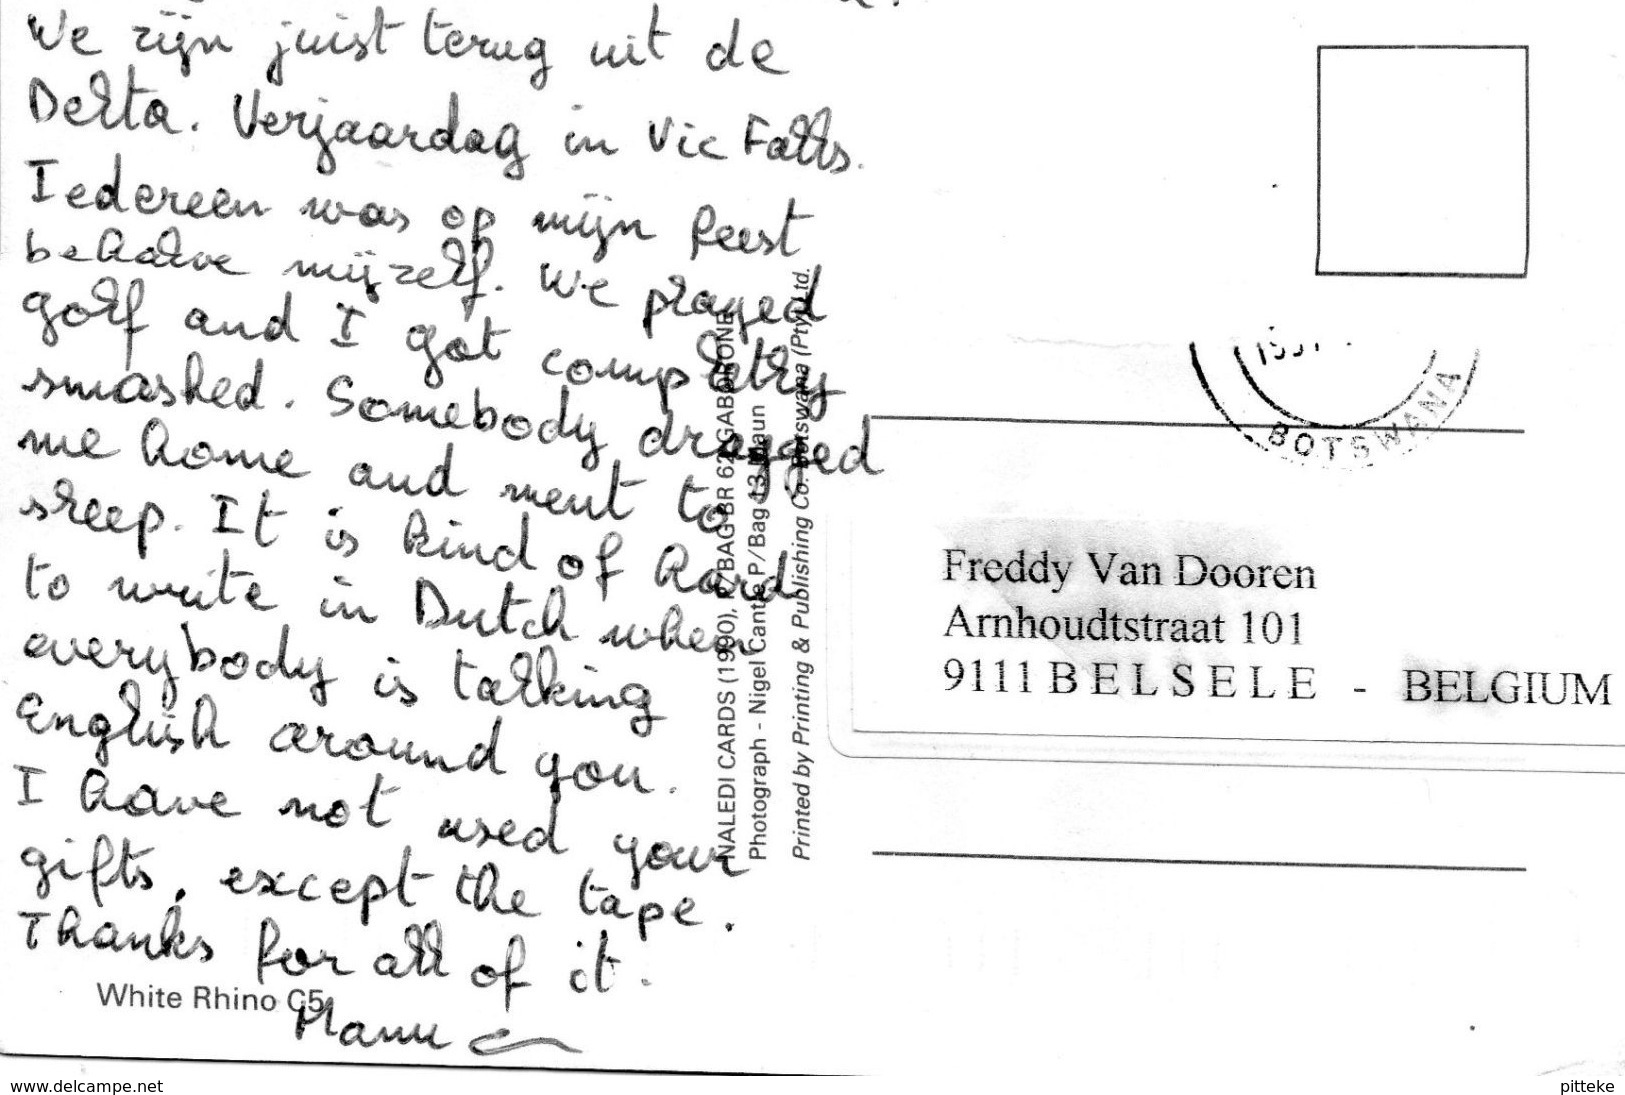 We zijn juist terug uit de
Delta. Verjaardag in Vic Falls.
Iedereen was op mijn feest
behalve mijzelf. We played
golf and I got completly
smashed. Somebody dragged
me home and went to
sleep. It is kind of hard
to write in Dutch when
everybody is talking
English around you.
I have not used your
gifts, except the tape.
Thanks for all of it.
Manu
White Rhino C5
NALEDI CARDS (1990), P/BAG BR 62 GABORONE
Photograph - Nigel Cantle P/Bag 13 Maun
Printed by Printing & Publishing Co. Botswana (Pty) Ltd.
BOTSWANA
Freddy Van Dooren
Arnhoudtstraat 101
9111 BELSELE - BELGIUM
www.delcampe.net
pitteke